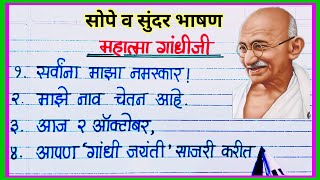 सोपे व सुंदर भाषण
महात्मा गांधीजी
१. सर्वांना माझा नमस्कार!
२. माझे नाव चेतन आहे.
३. आज २ ऑक्टोबर,
४. आपण 'गांधी जयंती' साजरी करीत